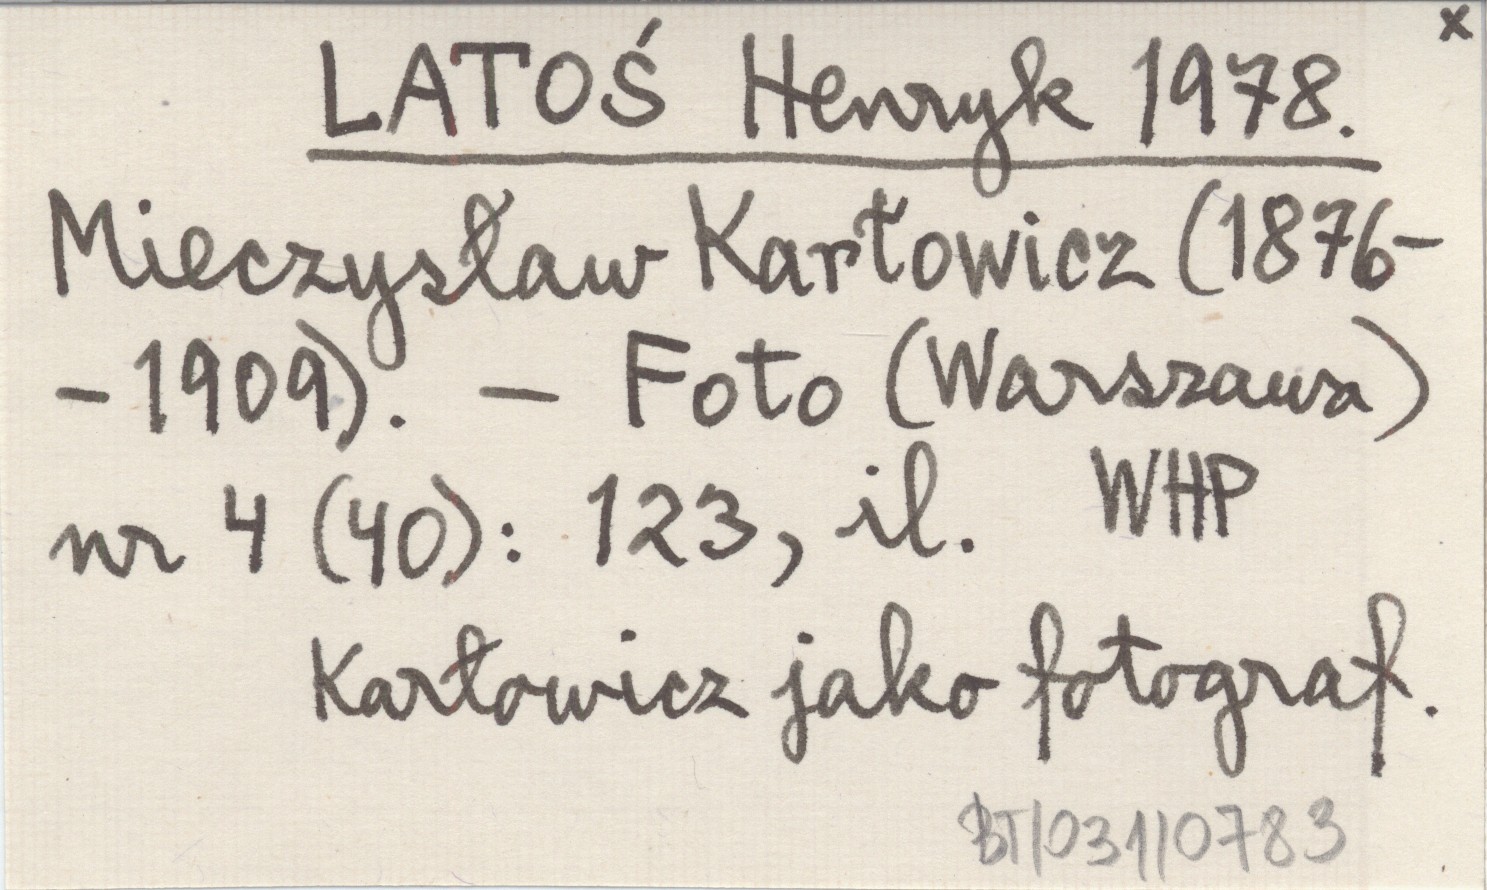 x
LATOŚ Henryk 1978.
Mieczysław Karłowicz (1876-
-1909). - Foto (Warszawa)
nr 4 (40): 123, il. WHP
Karłowicz jako fotograf.
BT/031/0783